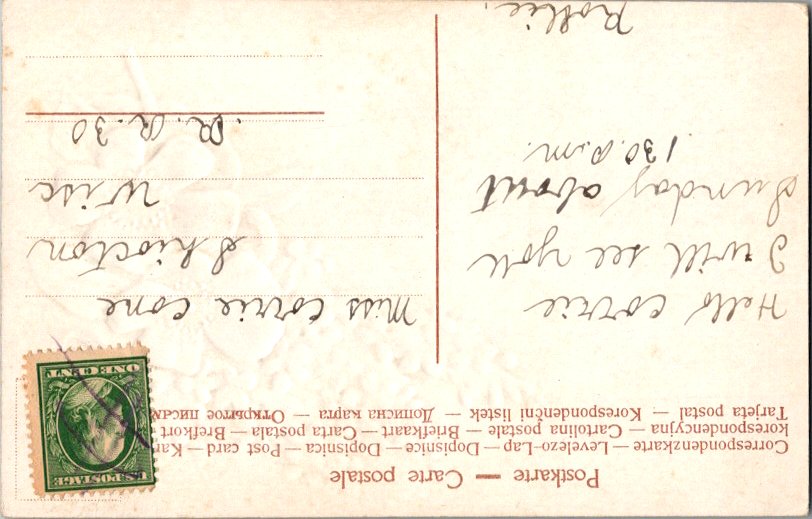 Postkarte — Carte postale
Correspondenzkarte — Levelezo-Lap — Dopisnice — Dopisnica — Post card —
korespondencyjna — Cartolina postale — Briefkaart — Carta postala — Brefkort
Tarjeta postal — Korespondenční listek — Дописна карта — Открытое
U.S. POSTAGE
ONE CENT
Hello Corrie
I will see you
Sunday about
1 30 P.m.
Rollie.
Miss Corrie Cone
Shiocton
Wisc
R. R. 30